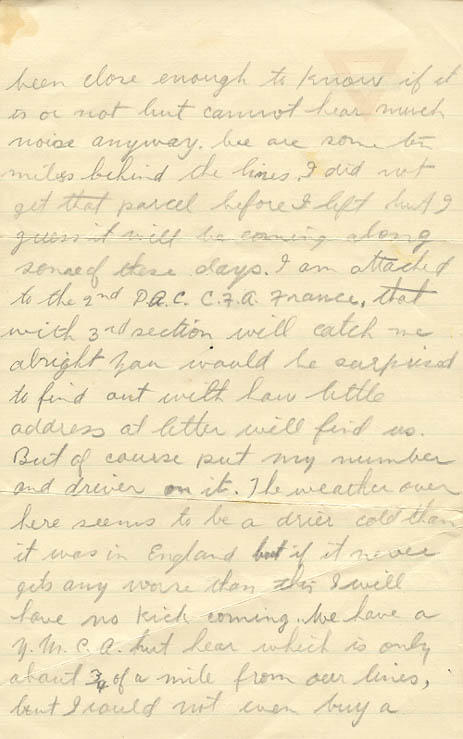 been close enough to know if it
is or not but cannot hear much
noise anyway. We are some ten
miles behind the lines. I did not
get that parcel before I left but I
guess it will be coming along
some of these days. I am attached
to the 2nd D.A.C. C.F.A. France, that
with 3rd section will catch me
alright you would be surprised
to find out with how little
address at letter will find us.
But of course put my number
and driver on it. The weather over
here seems to be a drier cold than
it was in England but if it never
gets any worse than this I will
have no kick coming. We have a
Y.M.C.A. hut hear which is only
about 3/4 of a mile from our lines,
but I could not even buy a